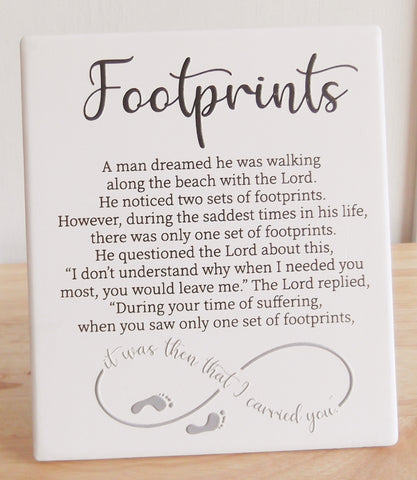 Footprints
A man dreamed he was walking
along the beach with the Lord.
He noticed two sets of footprints.
However, during the saddest times in his life,
there was only one set of footprints.
He questioned the Lord about this,
“I don’t understand why when I needed you
most, you would leave me.” The Lord replied,
“During your time of suffering,
when you saw only one set of footprints,
it was then that I carried you.”